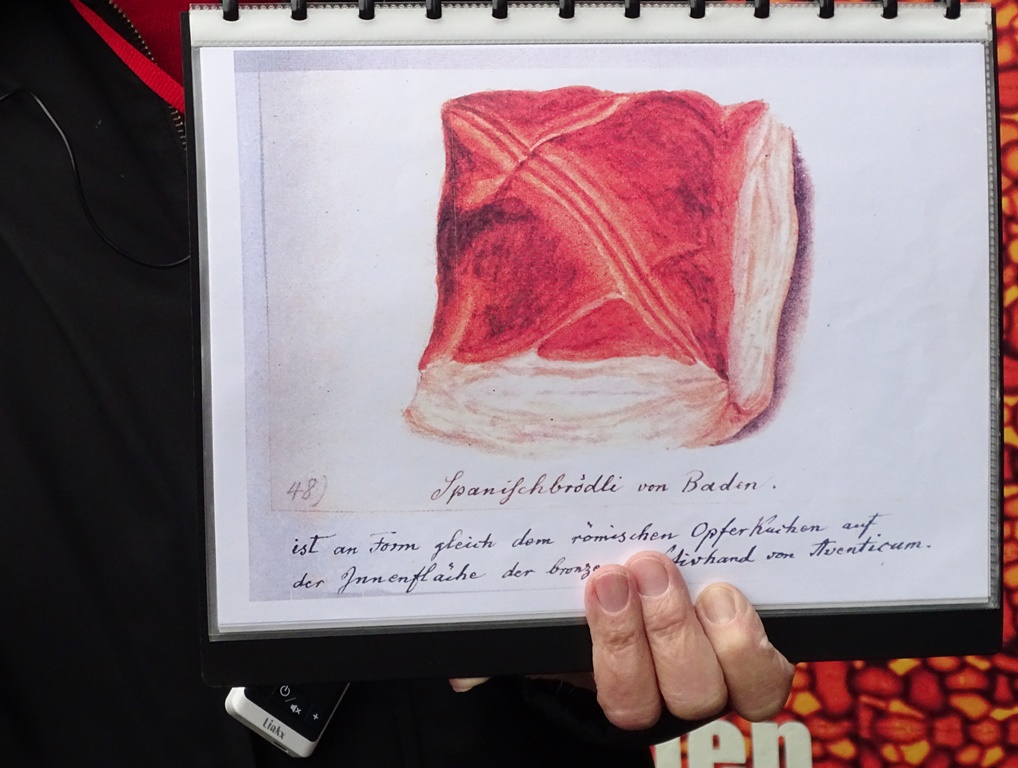 48)
Spanischbrödli von Baden.
ist an Form gleich dem römischen Opferkuchen auf
der Innenfläche der bronze tivhand von Aventicum.
Liakx
nen